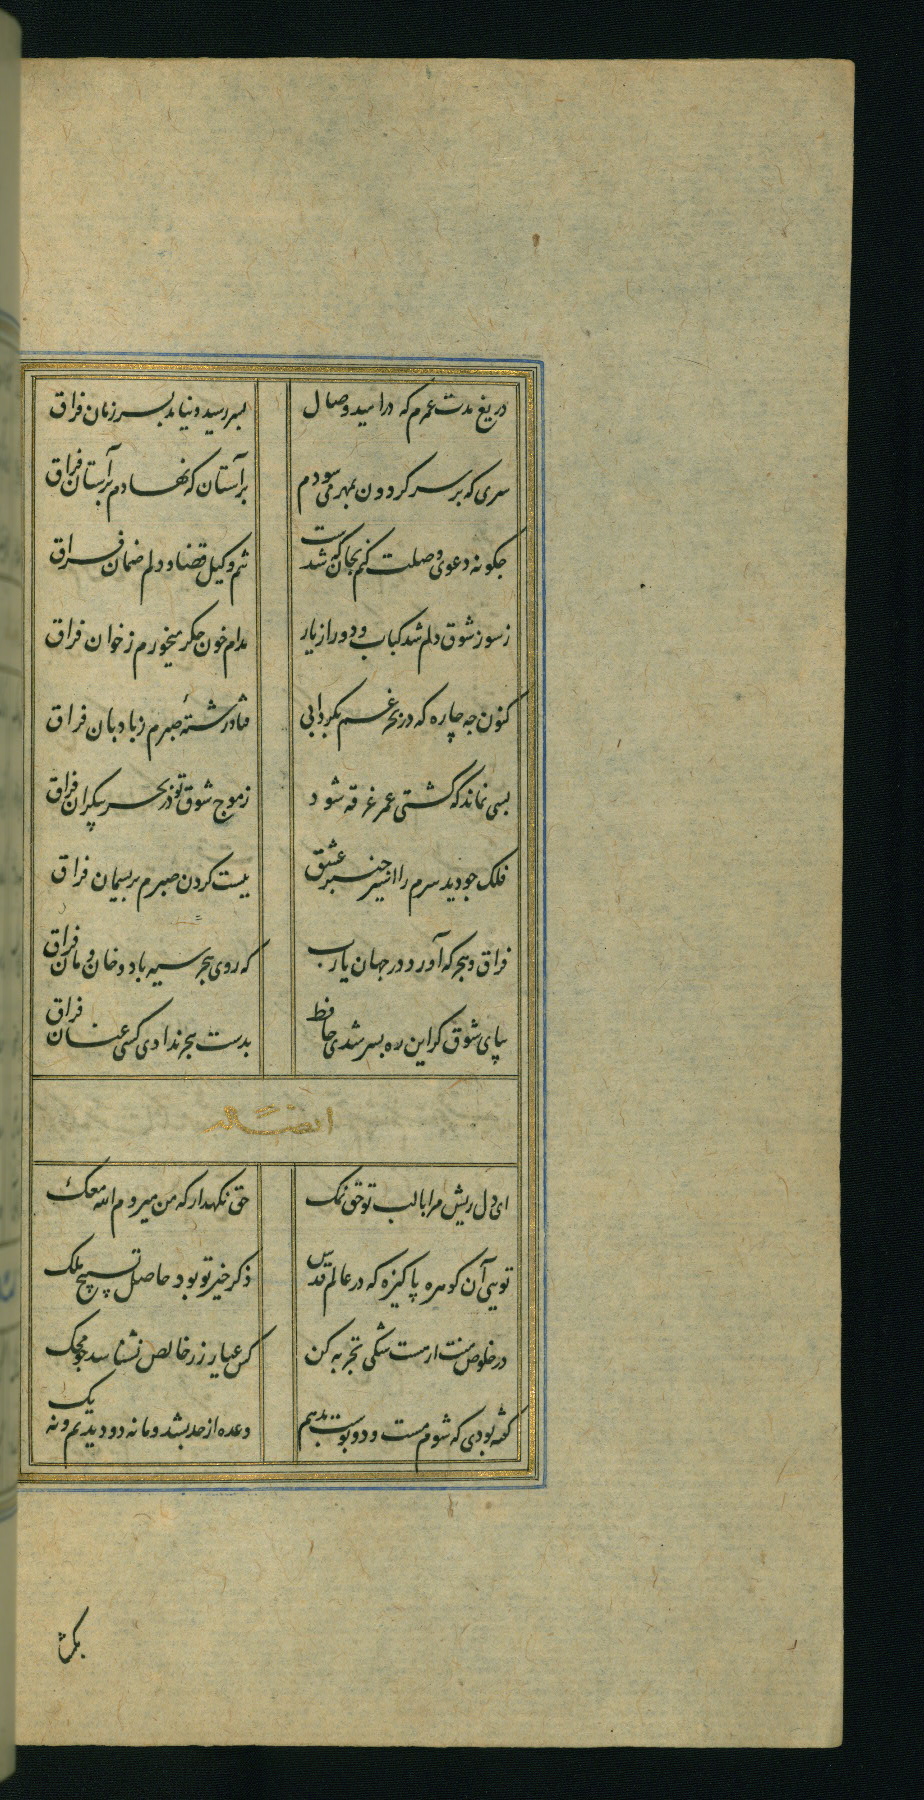 دریغ مدت عمرم که در امید وصال بسر رسید و نیامد بسر زمان فراق
سری که بر سر گردون بمهر می سودم بر آستان که نهادم بر آستان فراق
چگونه دعوی وصلت کنم بجان که شدست تنم وکیل قضا و دلم ضمان فراق
ز سوز شوق دلم شد کباب و دور از یار مدام خون جگر میخورم ز خوان فراق
کنون چه چاره که در بحر غم بگردابی فتاد رشتهٔ صبرم ز بادبان فراق
بسی نماند که کشتی عمر غرقه شود ز موج شوق تو در بحر بیکران فراق
فلک چو دید سرم را اسیر چنبر عشق ببست گردن صبرم بریسمان فراق
فراق و هجر که آورد در جهان یارب که روی هجر سیه باد و خان و مان فراق
بپای شوق گر این ره بسر شدی حافظ بدست هجر ندادی کسی عنان فراق
ایضا له
ای دل ریش مرا با لب تو حق نمک حق نگهدار که من میروم الله معک
تویی آن گوهر پاکیزه که در عالم قدس ذکر خیر تو بود حاصل تسبیح ملک
در خلوص منت ار هست شکی تجربه کن کس عیار زر خالص نشناسد چو محک
گفته بودی که شوم مست و دو بوست بدهم وعده از حد بشد و ما نه دو دیدیم و نه یک
بگشا